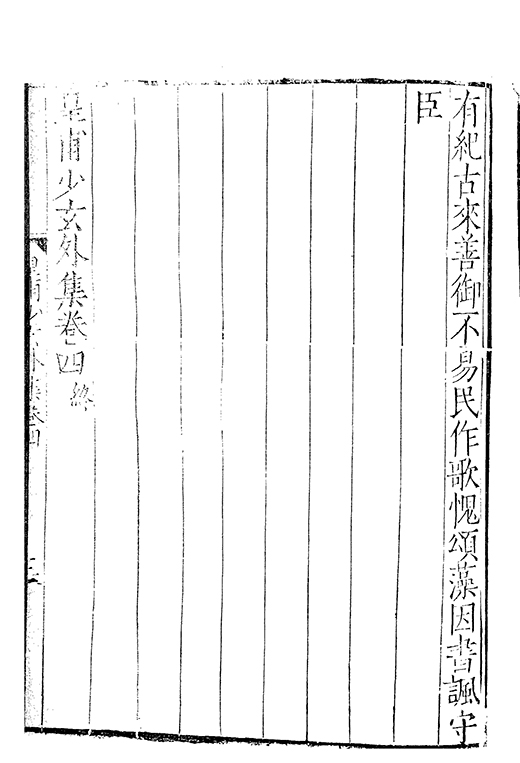 有紀古來善御不易民作歌愧頌藻因書諷守
臣
皇甫少玄外集卷四終
皇甫少玄外集卷四